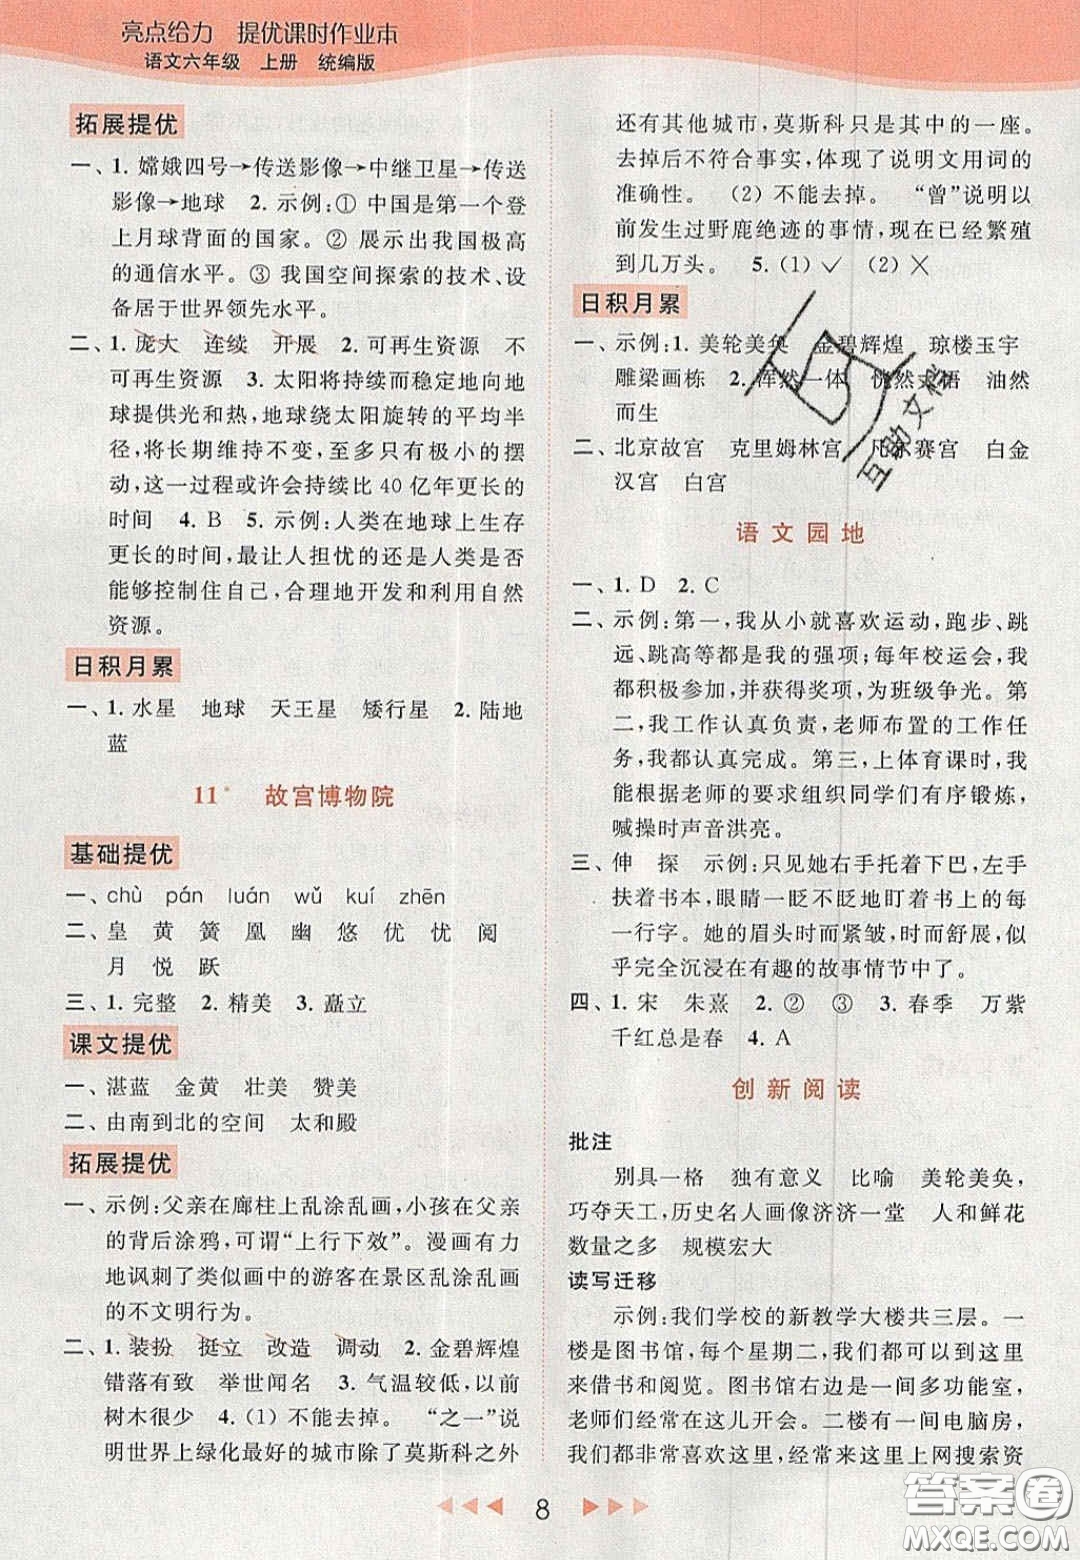 亮点给力 提优课时作业本
语文六年级 上册 统编版
拓展提优
一、1. 嫦娥四号→传送影像→中继卫星→传送
影像→地球 2. 示例:① 中国是第一个登
上月球背面的国家。② 展示出我国极高
的通信水平。③ 我国空间探索的技术、设
备居于世界领先水平。
二、1. 庞大 连续 开展 2. 可再生资源 不
可再生资源 3. 太阳将持续而稳定地向地
球提供光和热,地球绕太阳旋转的平均半
径,将长期维持不变,至多只有轻微的摆
动,这一过程或许会持续比 40 亿年更长的
时间 4. B 5. 示例:人类在地球上生存
更长的时间,最让人担忧的还是人类是否
能够控制住自己,合理地开发和利用自然
资源。
日积月累
一、1. 水星 地球 天王星 矮行星 2. 陆地
蓝
11* 故宫博物院
基础提优
一、chù pán luán wǔ kuí zhēn
二、皇 黄 簧 凰 幽 悠 优 忧 阅
月 悦 跃
三、1. 完整 2. 精美 3. 矗立
课文提优
一、湛蓝 金黄 壮美 赞美
二、由南到北的空间 太和殿
拓展提优
一、示例:父亲在廊柱上乱涂乱画,小孩在父亲
的背后涂鸦,可谓“上行下效”。漫画有力
地讽刺了类似画中的游客在景区乱涂乱画
的不文明行为。
二、1. 装扮 挺立 改造 调动 2. 金碧辉煌
错落有致 举世闻名 3. 气温较低,以前
树木很少 4. (1) 不能去掉。 “之一”说
明世界上绿化最好的城市除了莫斯科之外
还有其他城市,莫斯科只是其中的一座。
去掉后不符合事实,体现了说明文用词的
准确性。 (2) 不能去掉。 “曾”说明以
前发生过野鹿绝迹的事情,现在已经繁殖
到几万头。 5. (1) ✓ (2) ✕
日积月累
一、示例:1. 美轮美奂 金碧辉煌 琼楼玉宇
雕梁画栋 2. 浑然一体 恍然大悟 油然
而生
二、北京故宫 克里姆林宫 凡尔赛宫 白金
汉宫 白宫
语文园地
一、1. D 2. C
二、示例:第一,我从小就喜欢运动,跑步、跳
远、跳高等都是我的强项;每年校运会,我
都积极参加,并获得奖项,为班级争光。第
二,我工作认真负责,老师布置的工作任
务,我都认真完成。第三,上体育课时,我能
根据老师的要求组织同学们有序锻炼,
喊操时声音洪亮。
三、伸 探 示例:只见她右手托着下巴,左手
扶着书本,眼睛一眨不眨地盯着书上的每
一行字。她的眉头时而紧皱,时而舒展,似
乎完全沉浸在有趣的故事情节中了。
四、1. 宋 朱熹 2. ② ③ 3. 春季 万紫
千红总是春 4. A
创新阅读
批注
别具一格 独有意义 比喻 美轮美奂,
巧夺天工,历史名人画像济济一堂 人和鲜花
数量之多 规模宏大
读写迁移
示例:我们学校的新教学大楼共三层。一
楼是图书馆,每个星期二,我们都可以到这里
来借书和阅览。图书馆右边是一间多功能室,
老师们经常在这儿开会。二楼有一间电脑房,
我们都非常喜欢这里,经常来这里上网搜索资
8
互助文档
答案圈
MXQE.COM